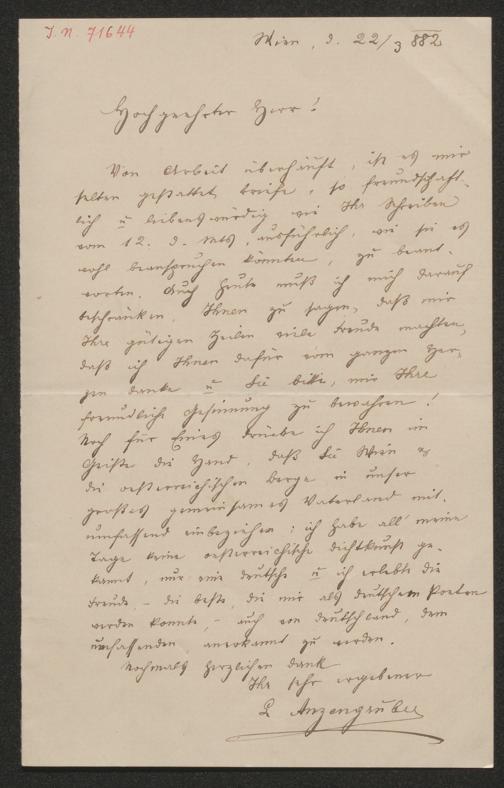 I. N. 71644
Wien, d. 22/3 882
Hochgeehrter Herr!
Von Arbeit überhäuft, ist es mir
selten gestattet, briefe, so freundschaft-
lich u liebenswürdig wie Ihr Schreiben
vom 12. d. Mts, ausführlich, wie sie es
wohl beanspruchen könnten, zu beant-
worten. Auch heute muß ich mich darauf
beschränken, Ihnen zu sagen, daß mir
Ihre gütigen Zeilen viele Freude machten,
daß ich Ihnen dafür vom ganzen Her-
zen danke u Sie bitte, mir Ihre
freundliche Gesinnung zu bewahren!
Noch für Eines drücke ich Ihnen im
Geiste die Hand, daß Sie Wien &
die oesterreichischen Berge in unser
großes gemeinsames Vaterland mit-
umfassend einbeziehen; ich habe all' meine
Tage keine oesterreichische Dichtkunst ge-
kannt, nur eine deutsche u ich erlebte die
Freude, – die beste, die mir als deutschem Poeten
werden konnte, – auch von Deutschland, dem
umfassenden anerkannt zu werden.
Nochmals herzlichen Dank
Ihr sehr ergebener
L Anzengruber